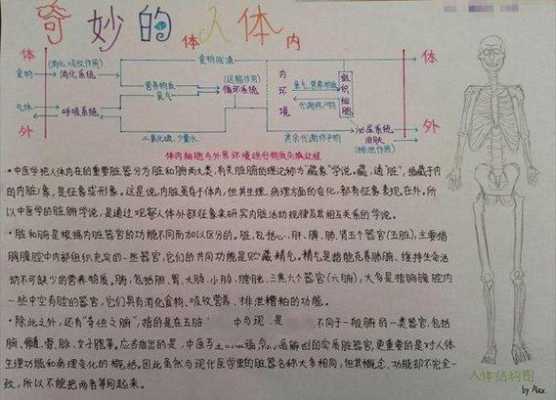 奇妙的人体
体内
体 体
食物 (消化、吸收作用) 消化系统 食物残渣
营养物质 氧气 (运输作用) 循环系统
内环境 氧气、营养物质 代谢废物 组织细胞
气体 呼吸系统
泌尿系统 皮肤 (排泄作用)
外 二氧化碳、少量水 其余代谢终产物 外
体内细胞与外界环境进行物质交换过程
·中医学把人体内在的重要脏器分为脏和腑两大类,有关脏腑的理论称为“藏象”学说。藏,通“脏”,指藏于内
的内脏;象,是征象或形象。这是说,内脏虽存于体内,但其生理、病理方面的变化,都有征象表现在外。所
以中医学的脏腑学说,是通过观察人体外部征象来研究内脏活动规律及其相互关系的学说。
·脏和腑是根据内脏器官的功能不同而加以区分的。脏,包括心、肝、脾、肺、肾五个器官(五脏),主要指
胸腹腔中内部组织充实的一些器官,它们的共同功能是贮藏精气。精气是指能充养脏腑、维持生命活
动不可缺少的营养物质。腑,包括胆、胃、大肠、小肠、膀胱、三焦六个器官(六腑),大多是指胸腹腔内
一些中空有腔的器官,它们具有消化食物、吸收营养、排泄糟粕的功能。
·除此之外,还有“奇恒之腑”,指的是在五脏 中与 现 是 不同于一般腑的一类器官,包括
脑、髓、骨、脉、女子胞等。应当指出的是,中医 脏 解剖的实质脏器官,更重要的是对人体
生理功能和病理变化的概括。因此虽然与现代医学里的脏器名称大多相同,但其概念、功能却不完全一
致,所以不能把两者等同起来。
人体结构图
by Alex